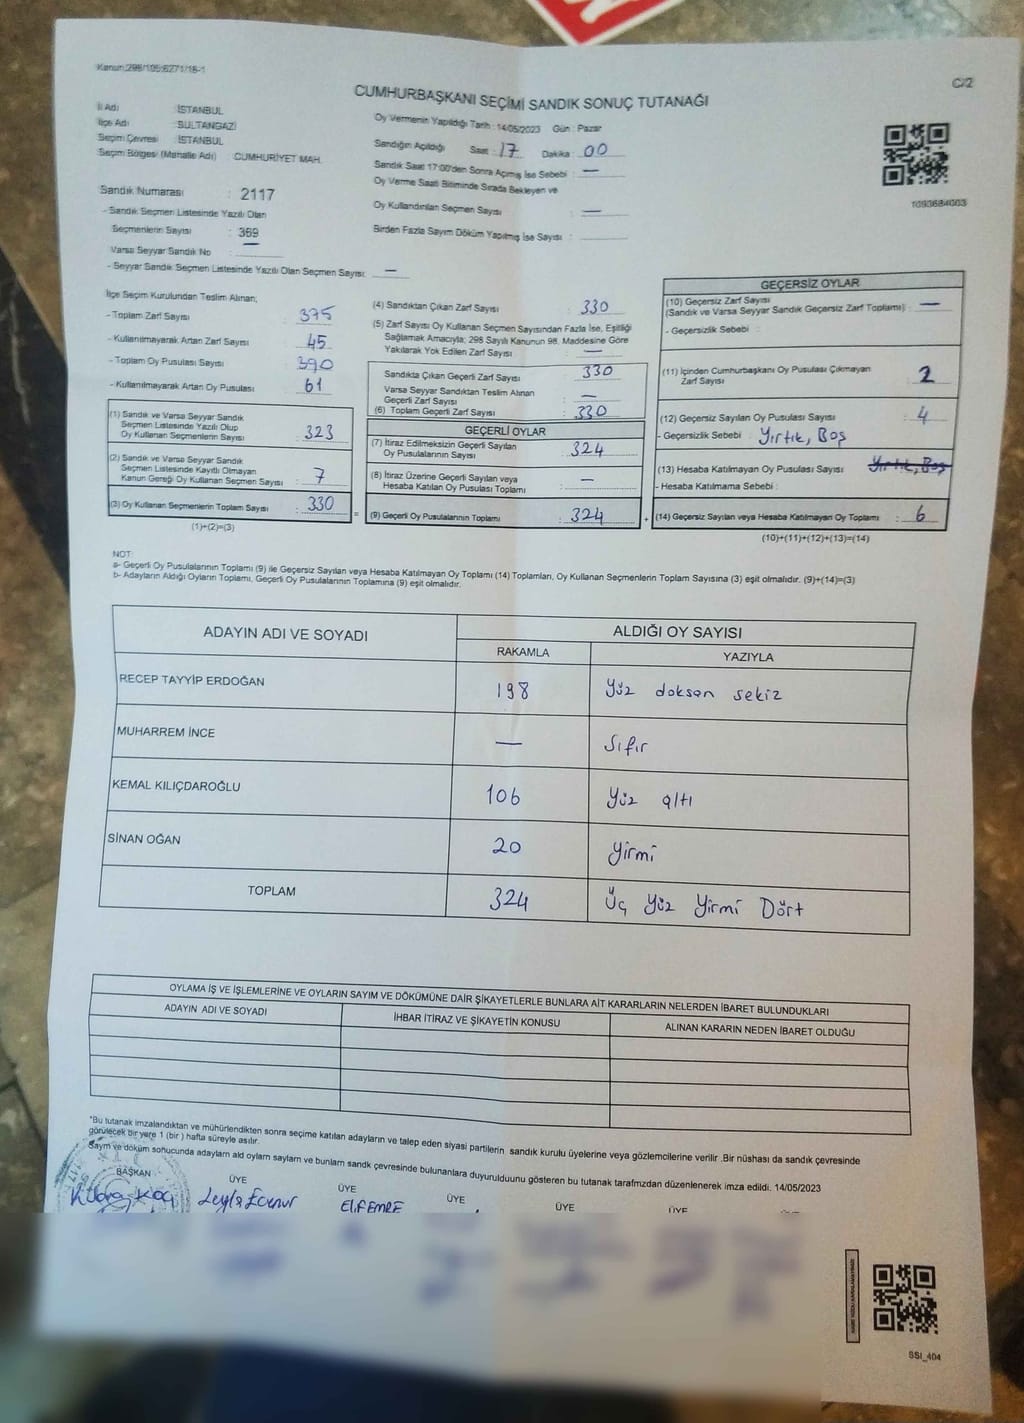 Kanun:298/105:6271/16-1
C/2
CUMHURBAŞKANI SEÇİMİ SANDIK SONUÇ TUTANAĞI
İl Adı : İSTANBUL
İlçe Adı : SULTANGAZİ
Seçim Çevresi : İSTANBUL
Seçim Bölgesi (Mahalle Adı) : CUMHURİYET MAH.
Sandık Numarası : 2117
- Sandık Seçmen Listesinde Yazılı Olan
Seçmenlerin Sayısı : 369
Varsa Seyyar Sandık No : —
- Seyyar Sandık Seçmen Listesinde Yazılı Olan Seçmen Sayısı: —
Oy Vermenin Yapıldığı Tarih : 14/05/2023 Gün : Pazar
Sandığın Açıldığı Saat : 17 Dakika : 00
Sandık Saat 17:00'den Sonra Açımış İse Sebebi : —
Oy Verme Saati Bitiminde Sırada Bekleyen ve
Oy Kullandırılan Seçmen Sayısı : —
Birden Fazla Sayım Döküm Yapılmış İse Sayısı :
1093684003
İlçe Seçim Kurulundan Teslim Alınan;
- Toplam Zarf Sayısı : 375
- Kullanılmayarak Artan Zarf Sayısı : 45
- Toplam Oy Pusulası Sayısı : 390
- Kullanılmayarak Artan Oy Pusulası : 61
(1) Sandık ve Varsa Seyyar Sandık
Seçmen Listesinde Yazılı Olup
Oy Kullanan Seçmenlerin Sayısı : 323
(2) Sandık ve Varsa Seyyar Sandık
Seçmen Listesinde Kayıtlı Olmayan
Kanun Gereği Oy Kullanan Seçmen Sayısı : 7
(3) Oy Kullanan Seçmenlerin Toplam Sayısı : 330
(1)+(2)=(3)
(4) Sandıktan Çıkan Zarf Sayısı : 330
(5) Zarf Sayısı Oy Kullanan Seçmen Sayısından Fazla İse, Eşitliği
Sağlamak Amacıyla; 298 Sayılı Kanunun 98. Maddesine Göre
Yakılarak Yok Edilen Zarf Sayısı : —
Sandıkta Çıkan Geçerli Zarf Sayısı : 330
Varsa Seyyar Sandıktan Teslim Alınan
Geçerli Zarf Sayısı : —
(6) Toplam Geçerli Zarf Sayısı : 330
GEÇERLİ OYLAR
(7) İtiraz Edilmeksizin Geçerli Sayılan
Oy Pusulalarının Sayısı : 324
(8) İtiraz Üzerine Geçerli Sayılan veya
Hesaba Katılan Oy Pusulası Toplamı : —
= (9) Geçerli Oy Pusulalarının Toplamı : 324 +
GEÇERSİZ OYLAR
(10) Geçersiz Zarf Sayısı
(Sandık ve Varsa Seyyar Sandık Geçersiz Zarf Toplamı) : —
- Geçersizlik Sebebi :
(11) İçinden Cumhurbaşkanı Oy Pusulası Çıkmayan
Zarf Sayısı : 2
(12) Geçersiz Sayılan Oy Pusulası Sayısı : 4
- Geçersizlik Sebebi : Yırtık, Boş
(13) Hesaba Katılmayan Oy Pusulası Sayısı Yırtık, Boş
- Hesaba Katılmama Sebebi :
(14) Geçersiz Sayılan veya Hesaba Katılmayan Oy Toplamı : 6
(10)+(11)+(12)+(13)=(14)
NOT:
a- Geçerli Oy Pusulalarının Toplamı (9) ile Geçersiz Sayılan veya Hesaba Katılmayan Oy Toplamı (14) Toplamları, Oy Kullanan Seçmenlerin Toplam Sayısına (3) eşit olmalıdır. (9)+(14)=(3)
b- Adayların Aldığı Oyların Toplamı, Geçerli Oy Pusulalarının Toplamına (9) eşit olmalıdır.
ADAYIN ADI VE SOYADI ALDIĞI OY SAYISI
RAKAMLA YAZIYLA
RECEP TAYYİP ERDOĞAN 198 Yüz doksan sekiz
MUHARREM İNCE — Sıfır
KEMAL KILIÇDAROĞLU 106 Yüz altı
SİNAN OĞAN 20 Yirmi
TOPLAM 324 Üç Yüz Yirmi Dört
OYLAMA İŞ VE İŞLEMLERİNE VE OYLARIN SAYIM VE DÖKÜMÜNE DAİR ŞİKAYETLERLE BUNLARA AİT KARARLARIN NELERDEN İBARET BULUNDUKLARI
ADAYIN ADI VE SOYADI İHBAR İTİRAZ VE ŞİKAYETİN KONUSU ALINAN KARARIN NEDEN İBARET OLDUĞU
*Bu tutanak imzalandıktan ve mühürlendikten sonra seçime katılan adayların ve talep eden siyasi partilerin sandık kurulu üyelerine veya gözlemcilerine verilir .Bir nüshası da sandık çevresinde
görülecek bir yere 1 (bir ) hafta süreyle asılır.
Sayım ve döküm sonucunda adayların ald oyların sayların ve bunların sandk çevresinde bulunanlara duyurulduunu gösteren bu tutanak tarafmızdan düzenlenerek imza edildi. 14/05/2023
BAŞKAN ÜYE ÜYE ÜYE ÜYE ÜYE
Kübra Koç Leyla Ecenur ELİF EMRE
SSI_404